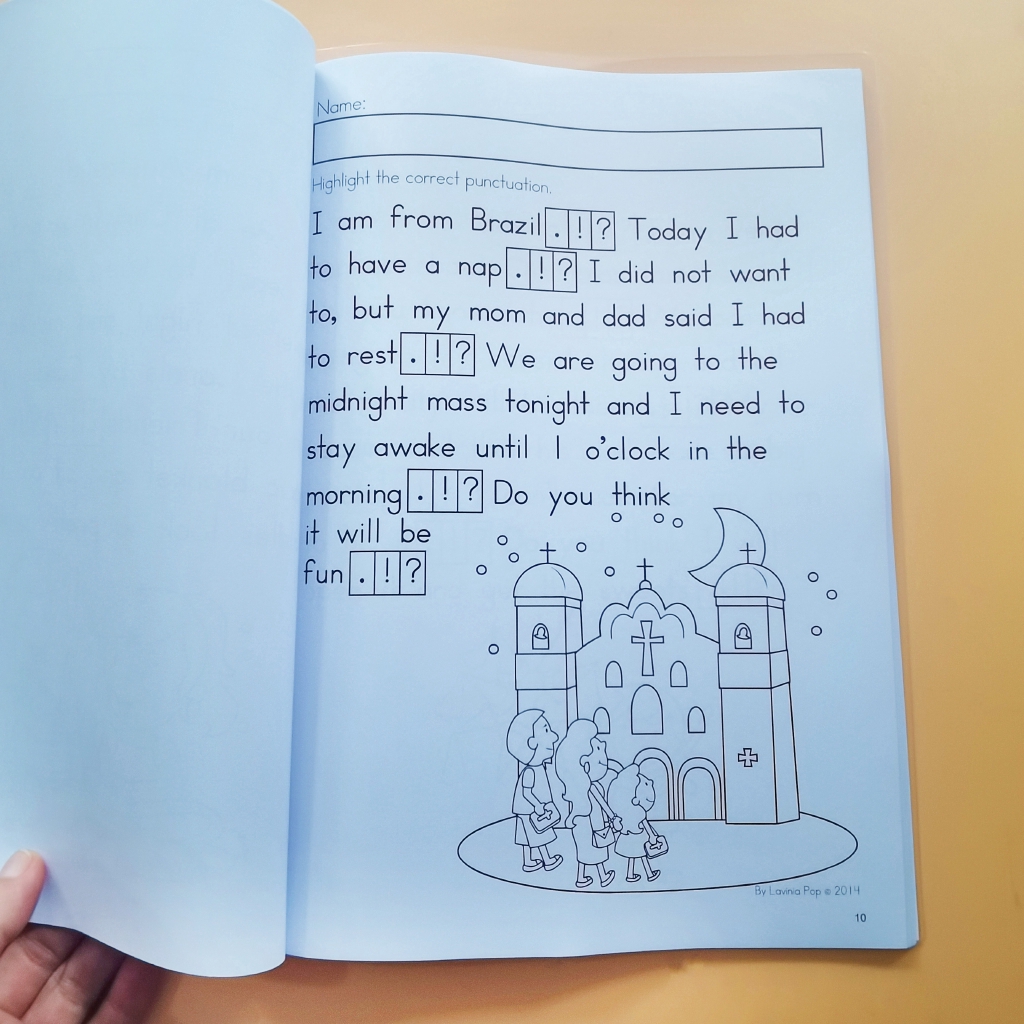 Name:
Highlight the correct punctuation.
I am from Brazil . ! ? Today I had
to have a nap . ! ? I did not want
to, but my mom and dad said I had
to rest . ! ? We are going to the
midnight mass tonight and I need to
stay awake until 1 o'clock in the
morning . ! ? Do you think
it will be
fun . ! ?
By Lavinia Pop © 2014
10